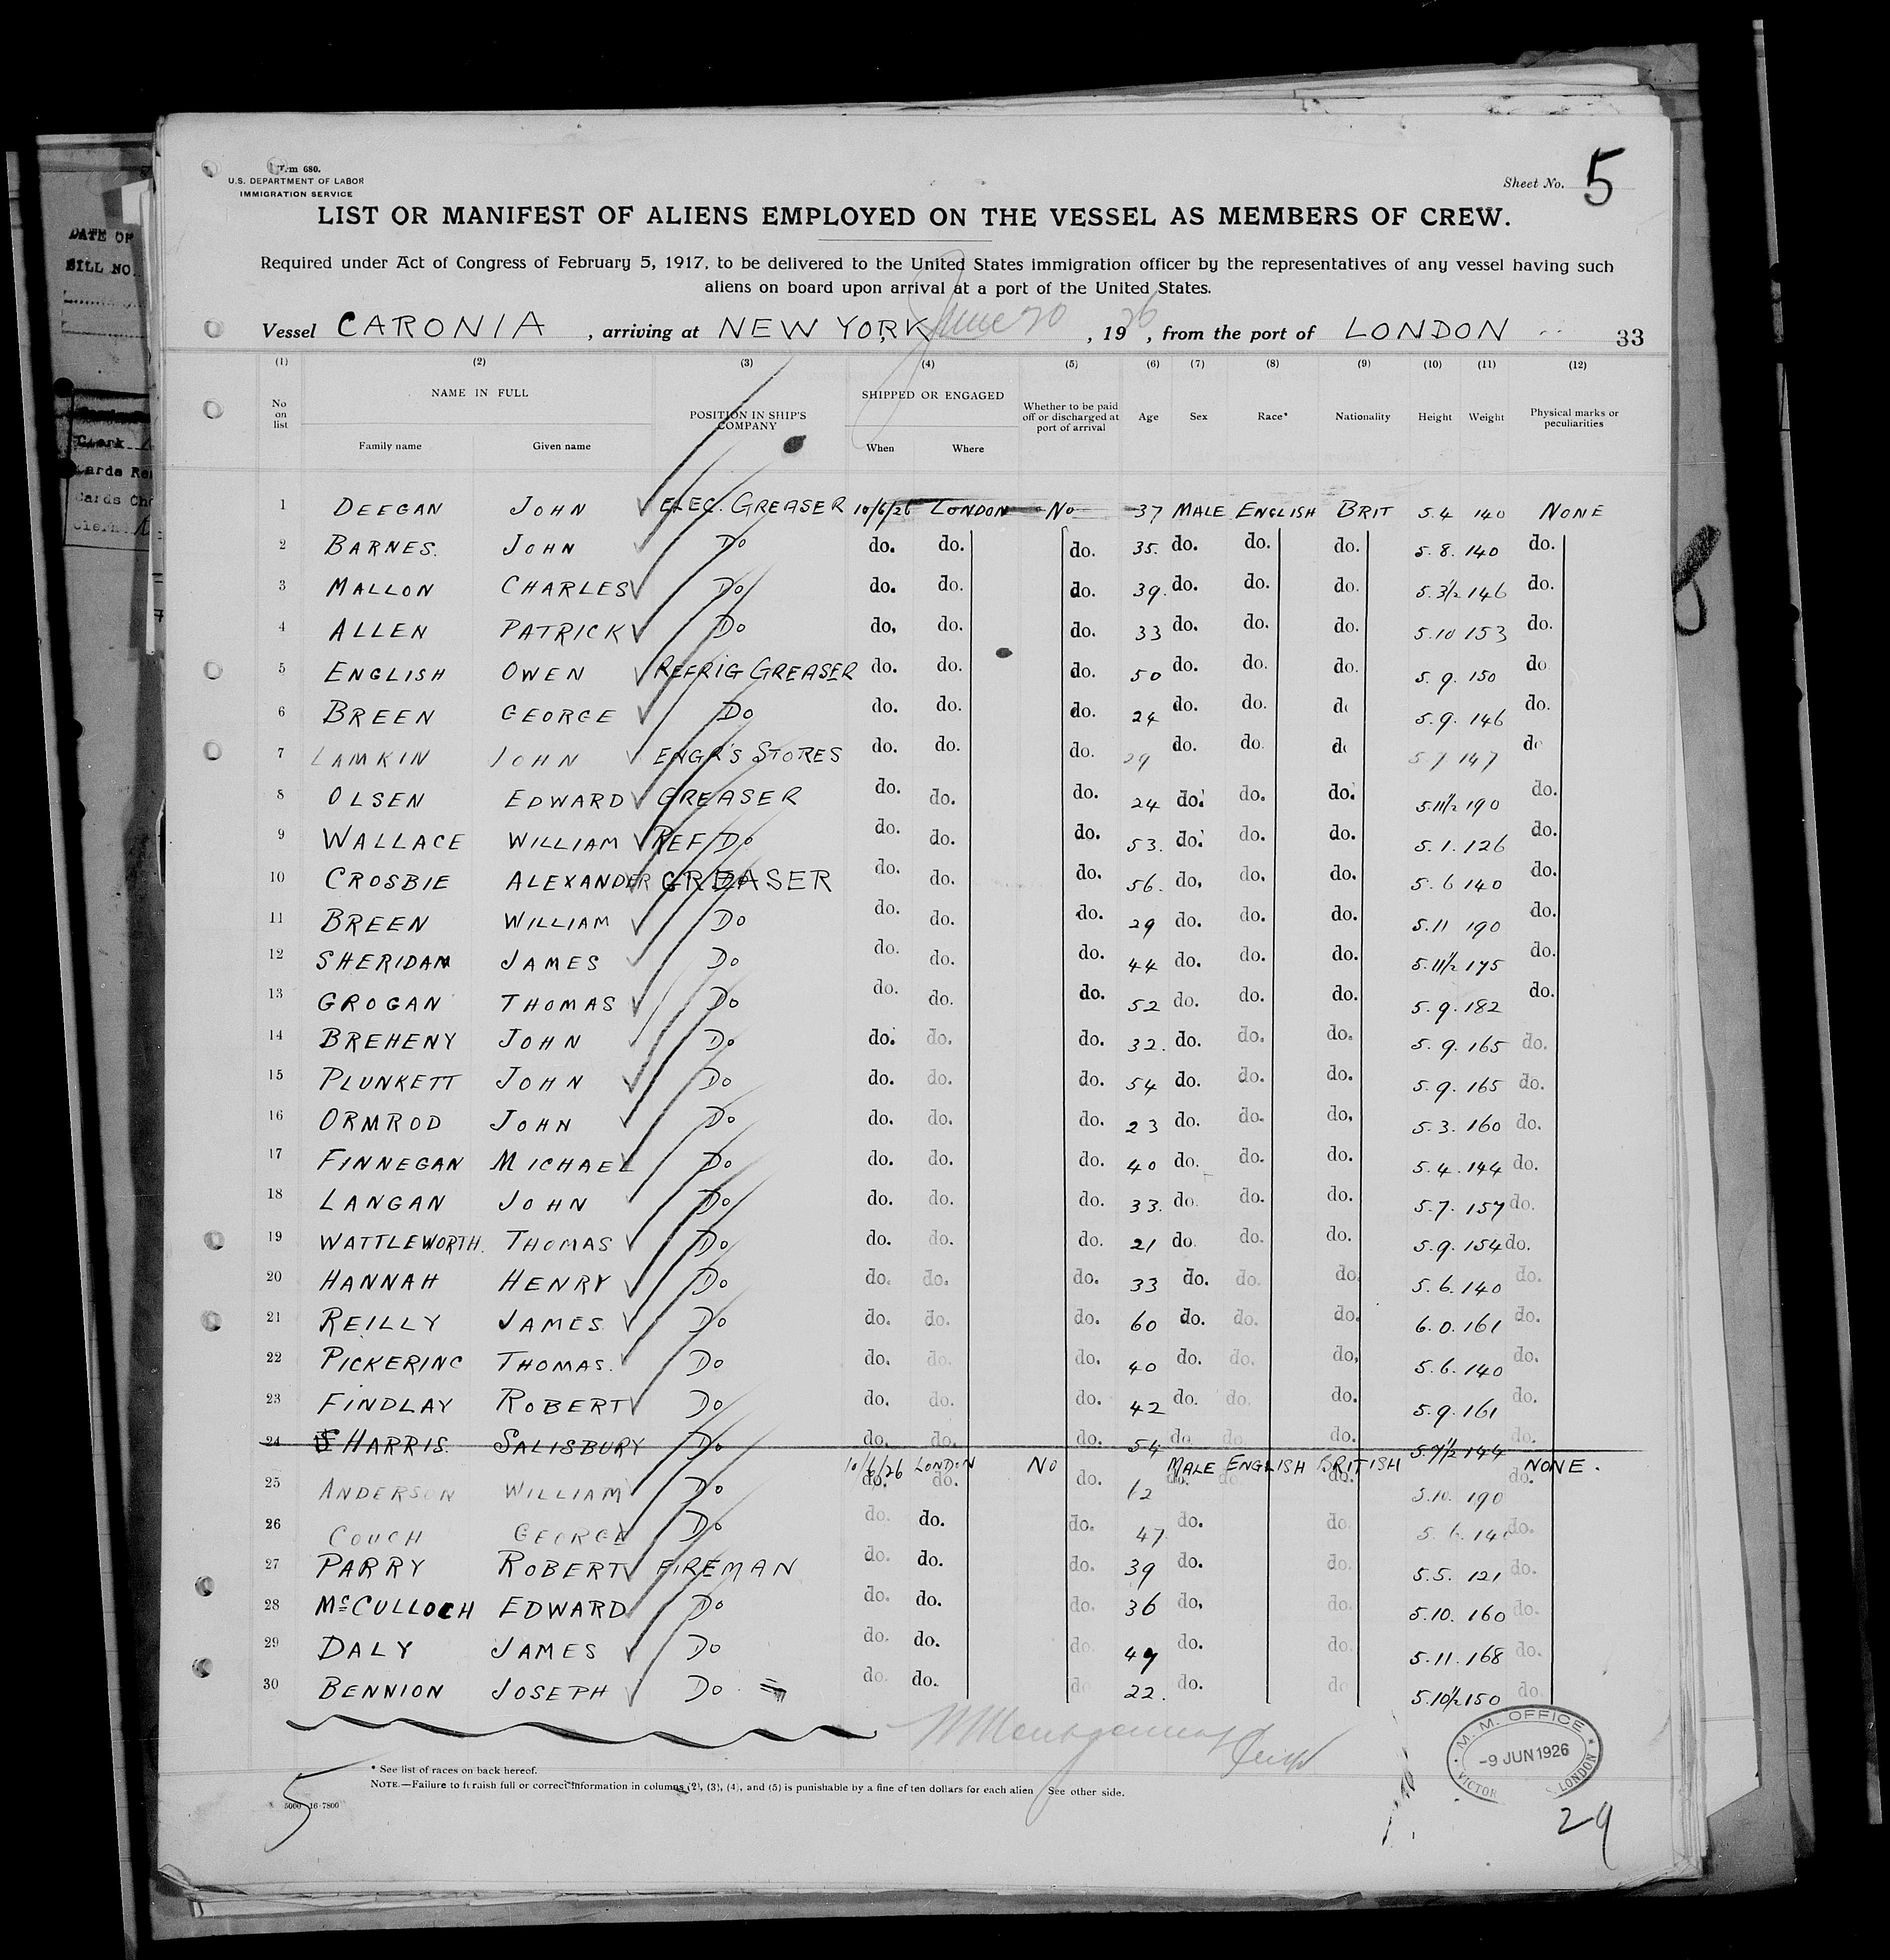 Form 680.
U.S. DEPARTMENT OF LABOR
IMMIGRATION SERVICE
Sheet No. 5
LIST OR MANIFEST OF ALIENS EMPLOYED ON THE VESSEL AS MEMBERS OF CREW.
Required under Act of Congress of February 5, 1917, to be delivered to the United States immigration officer by the representatives of any vessel having such
aliens on board upon arrival at a port of the United States.
Vessel CARONIA , arriving at NEW YORK, June 20 , 1926 , from the port of LONDON 33
(1) (2) (3) (4) (5) (6) (7) (8) (9) (10) (11) (12)
No on list NAME IN FULL Family name Given name POSITION IN SHIP'S COMPANY SHIPPED OR ENGAGED When Where Whether to be paid off or discharged at port of arrival Age Sex Race* Nationality Height Weight Physical marks or peculiarities
1 DEEGAN JOHN ELEC. GREASER 10/6/26 LONDON No 37 MALE ENGLISH BRIT 5.4 140 NONE
2 BARNES. JOHN Do do. do. do. 35. do. do. do. 5.8. 140 do.
3 MALLON CHARLES Do do. do. do. 39. do. do. do. 5.3½ 146 do.
4 ALLEN PATRICK Do do. do. do. 33 do. do. do. 5.10 153 do.
5 ENGLISH OWEN REFRIG GREASER do. do. do. 50 do. do. do. 5.9. 150 do
6 BREEN GEORGE Do do. do. do. 24 do. do. do 5.9. 146 do.
7 LAMKIN JOHN ENGR'S STORES do. do. do. 29 do. do. do 5.7 147 do
8 OLSEN EDWARD GREASER do. do. do. 24 do. do. do. 5.11½ 190 do.
9 WALLACE WILLIAM REF Do do. do. do. 53. do. do. do. 5.1. 126 do.
10 CROSBIE ALEXANDER GREASER do. do. do. 56. do. do. do. 5.6 140 do.
11 BREEN WILLIAM Do do. do. do. 29 do. do. do. 5.11 190 do.
12 SHERIDAN JAMES Do do. do. do. 44 do. do. do. 5.11½ 175 do.
13 GROGAN THOMAS Do do. do. do. 52 do. do. do. 5.9. 182 do.
14 BREHENY JOHN Do do. do. do. 32. do. do. do. 5.9. 165 do.
15 PLUNKETT JOHN Do do. do. do. 54 do. do. do. 5.9. 165 do.
16 ORMROD JOHN Do do. do. do. 23 do. do. do. 5.3. 160 do.
17 FINNEGAN MICHAEL Do do. do. do. 40 do. do. do. 5.4. 144 do.
18 LANGAN JOHN Do do. do. do. 33. do. do. do. 5.7. 157 do.
19 WATTLEWORTH. THOMAS Do do. do. do. 21 do. do. do. 5.9. 154 do.
20 HANNAH HENRY Do do. do. do. 33 do. do. do. 5.6. 140 do.
21 REILLY JAMES Do do. do. do. 60 do. do. do. 6.0. 161 do.
22 PICKERING THOMAS. Do do. do. do. 40 do. do. do. 5.6. 140 do.
23 FINDLAY ROBERT Do do. do. do. 42 do. do. do. 5.9. 161 do.
24 HARRIS. SALISBURY Do do. do. do. 54 do. do. do. 5.7½ 144 do.
10/6/26 LONDON No MALE ENGLISH BRITISH NONE.
25 ANDERSON WILLIAM Do do. do. do. do. do. do. 5.10. 190 do.
26 COUCH GEORGE Do do. do. do. 47 do. do. 5.6. do.
27 PARRY ROBERT FIREMAN do. do. do. 39 do. do. 5.5. 121 do.
28 McCULLOCH EDWARD Do do. do. do. 36 do. do. 5.10. 160 do.
29 DALY JAMES Do do. do. do. 49 do. do. 5.11. 168 do.
30 BENNION JOSEPH Do do. do. do 22. do. do 5.10½ 150 do.
* See list of races on back hereof.
NOTE.—Failure to furnish full or correct information in columns (2), (3), (4), and (5) is punishable by a fine of ten dollars for each alien See other side.
5000 16-7800
5
M. M. OFFICE
-9 JUN 1926
VICTOR LONDON
29
DATE OF
BILL NO.
Clerk
Cards
Cards
Clerk